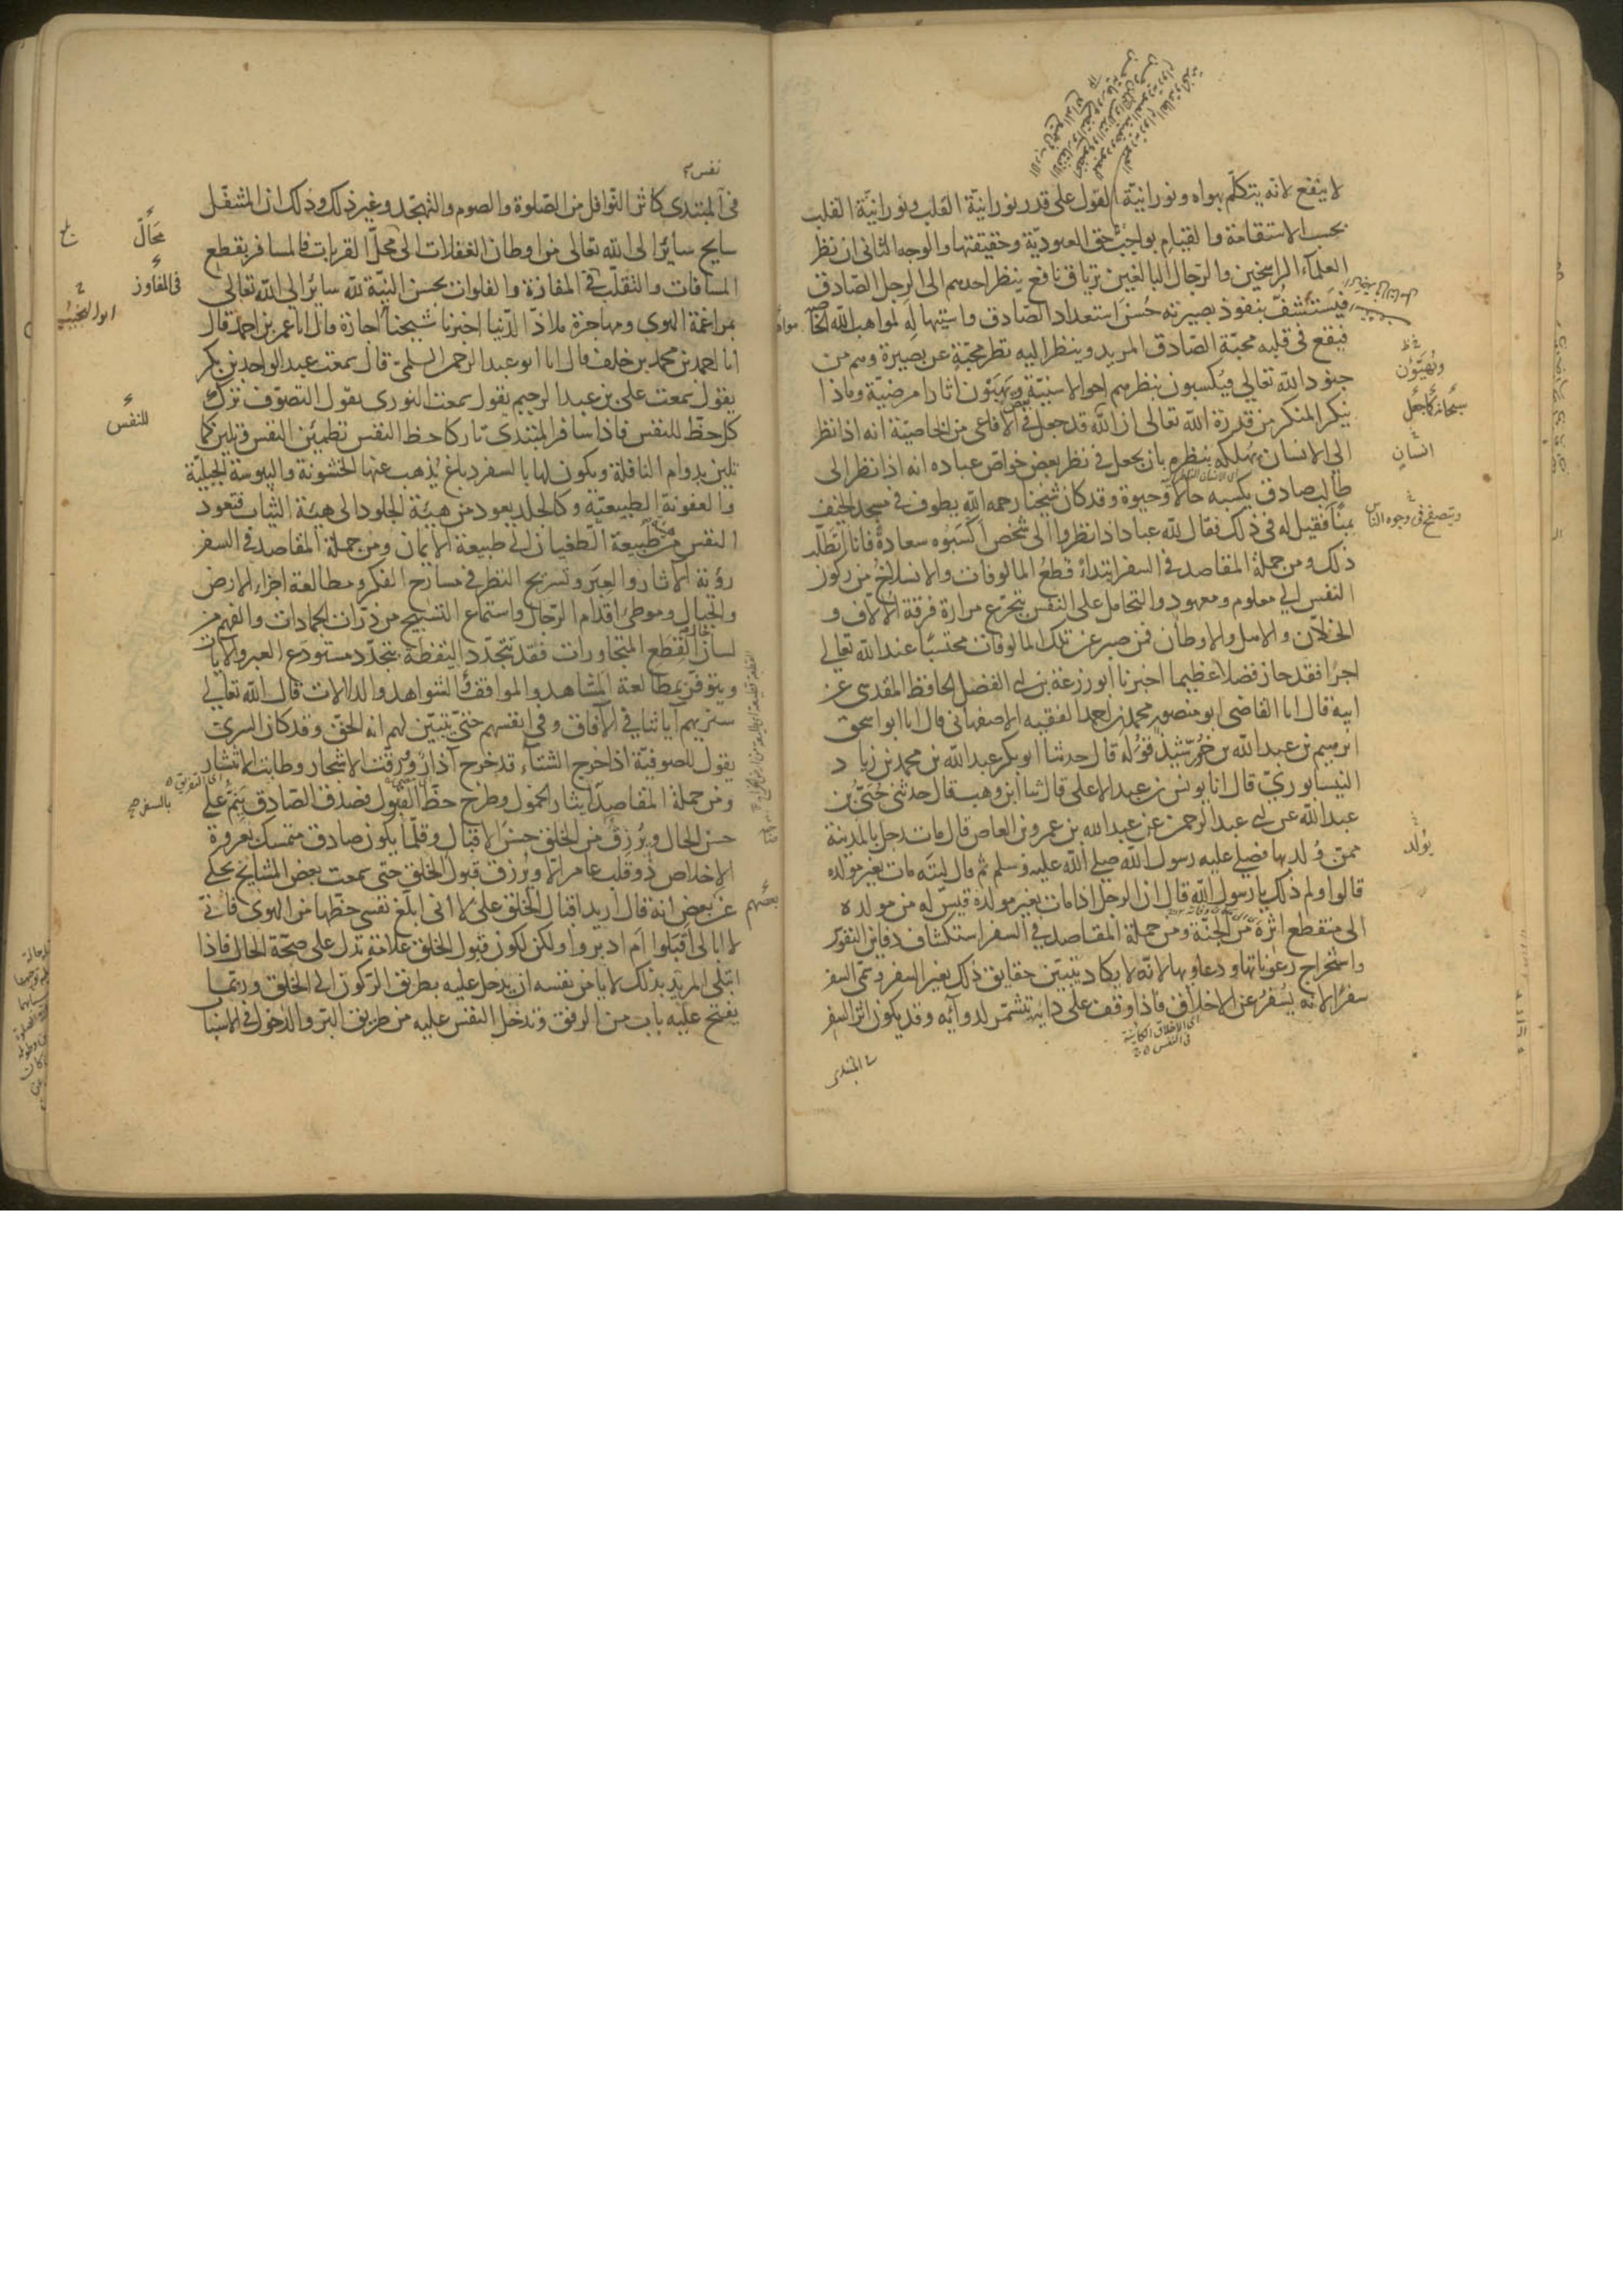 لا ينفع لانه يتكلم بهواه ونورانيّة القول على قدر نورانيّة القلب ونورانيّة القلب
بحسب الاستقامة والقيام بواجب حق العبوديّة وحقيقتها والوجه الثانى ان نظر
العلمآء الراسخين والرّجال البالغين ترياق نافع ينظر احدهم الى الرجل الصّادق
فيستشفّ بنفوذ بصيرته حُسْنَ استعداد الصّادق واستيهاله لمواهب الله الخاصة
فيقع فى قلبه محبّة الصّادق المريد وينظر اليه نظر محبّةٍ عن بصيرة وهم من
جنود الله تعالى فيُكسبون بنظرهم احوالا سنيّة ويَهَبَون اثارا مرضيّة وماذا
ينكر المنكر من قدرة الله تعالى ان الله قد جعل فى بعض الافاعى من الخاصيّة انه اذا نظر
الى الانسان يهلكه بنظره بان يجعل فى نظر بعض خواصّ عباده انه اذا نظر الى
طالب صادق يكسبه حالا وحيوة وقد كان شيخنا رحمه الله يطوف فى مسجد الخيف
بمنًا فقيل له فى ذلك فقال لله عباد اذا نظروا الى شخص اكْسَبُوه سعادة فانا اتطلّب
ذلك ومن جملة المقاصد فى السفر ابتداءً قطعُ المالوفات والانسلاخُ من ركون
النفس الى معلوم ومعهود والتحامل على النفس بتجرّع مرارة فرقة الالاّف و
الخلاّن والاهل والاوطان فمن صبر عن تلك المالوفات محتسبًا عند الله تعالى
اجرًا فقد حاز فضلا عظيما اخبرنا ابو زرعة بن ابى الفضل الحافظ المقدسى عن
ابيه قال انا القاضى ابو منصور محمد بن احمد الفقيه الاصفهانى قال انا ابو اسحق
ابرهيم بن عبد الله بن خُرّشيذ قُوْلَه قال حدثنا ابو بكر عبد الله بن محمد بن زياد
النيسابورىّ قال انا يونس بن عبد الاعلى قال ثنا ابن وهب قال حدثنى حُيَىّ بن
عبد الله عن ابى عبد الرحمن عن عبد الله بن عمرو بن العاص قال مات رجل بالمدينة
ممن وُلد بها فصلى عليه رسول الله صلى الله عليه وسلم ثم قال ليته مات بغير مولده
قالوا ولم ذلك يا رسول الله قال ان الرجل اذا مات بغير مولده قيس له من مولده
الى منقطع اثره من الجنّة ومن جملة المقاصد فى السفر استكشاف دقائق النفوس
واستخراج رعوناتها ودعاويها لانّه لا يكاد يتبيّن حقايق ذلك بغير السفر وسمّى السفر
سفرًا لانه يُسْفرُ عن الاخلاق فاذا وقف على دائه يتشمّر لدوآئه وقد يكون اثر السفر
اى الاخلاق الكاينة
فى النفس
المبتدى
ويُهَيَّؤن
سبحانه كما جعل
انسانٍ
ويتصفح فى وجوه الناس
يُولد
نفس
فى المبتدى كاثر النّوافل من الصّلوة والصوم والتهجّد وغير ذلك وذلك ان المتنفّل
سايح سائرا الى الله تعالى من اوطان الغفلات الى محلّ القربات فالمسافر يقطع
المسافات والتقلّب فى المفازة والفلوات بحسن النيّة لله سائرا الى الله تعالى
بمراغمة الهوى ومهاجرة ملاذّ الدّنيا اخبرنا شيخنا اجازة قال انا عمر بن احمد قال
انا احمد بن محمد بن خلف قال انا ابو عبد الرحمن السلمىّ قال سمعت عبد الواحد بن بكر
يقول سمعت على بن عبد الرحيم يقول سمعت النورى يقول التصوّف ترك
كل حظّ للنفس فاذا سافر المبتدى تاركا حظ النفس تطمئن النفس وتلين كما
تلين بدوام النافلة ويكون لها بالسفر دباغ يُذهب عنها الخشونة واليبوسة الجبليّة
والعفونة الطبيعيّة وكالجلد يعود من هيئة الجلود الى هيئة الثياب فتعود
النفس من طبيعة الطغيان الى طبيعة الايمان ومن جملة المقاصد فى السفر
رؤية الاثار والعِبَر وتسريح النظر فى مسارح الفكر ومطالعة اجزاء الارض
والجبال وموطئ اقدام الرّجال واستماع التسبيح من ذرّات الجمادات والفهم من
لسان القِطَع المتجاورات فقد تتجدّد اليقظة بتجدّد مستودع العبر والايات
ويتوفّر بمطالعة المشاهد والمواقف الشواهد والدلالات قال الله تعالى
سنريهم آياتنا فى الآفاق وفى انفسهم حتى يتبيّن لهم انه الحق وقد كان السرىّ
يقول للصوفيّة اذا خرج الشتاء قد خرج آذار وورقت الاشجار وطاب الانتشار
ومن جملة المقاصد ايثار الخمول وطرح حظّ القبول فصدق الصّادق يَنِمُّ على
حسن الحال ويُرْزق من الخلق حسن الاقبال وقلّما يكون صادق متمسك بعروة
الاخلاص ذو قلب عامر الّا ويُرزق قبول الخلق حتى سمعت بعض المشايخ يحكى
عن بعض انه قال اريد اقبال الخلق علىّ لا انى ابلغ نفسى حظها من الهوى فانّى
لا ابالى اقبَلوا ام ادبروا ولكن لكون قبول الخلق علامة تدل على صحّة الحال فاذا
ابتلى المريد بذلك لا يامن نفسه ان يدخل عليه بطريق الركون الى الخلق وربّما
يفتح عليه باب من الرفق وتدخل النفس عليه من طريق البرّ والدخول فى الاسباب
مَحَالّ
فى المفاوز
ابو النجيب
للنفس
بالسفر
بعضهم